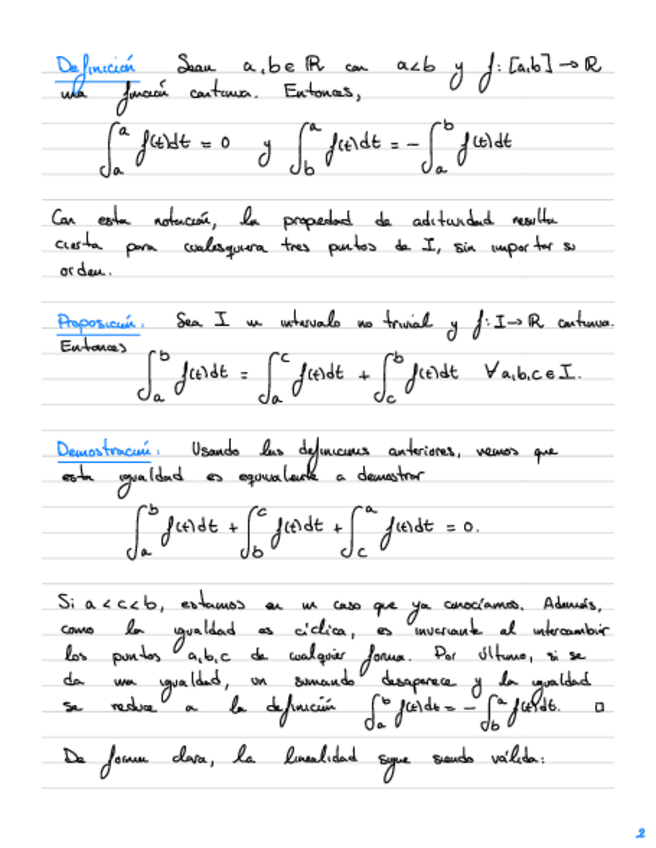 Definición Sean a,b∈ℝ con a<b y f:[a,b]→ℝ
una función continua. Entonces,
∫_a^a f(t)dt = 0 y ∫_b^a f(t)dt = -∫_a^b f(t)dt
Con esta notación, la propiedad de aditividad resulta
cierta para cualesquiera tres puntos de I, sin importar su
orden.
Proposición: Sea I un intervalo no trivial y f:I→ℝ continua.
Entonces
∫_a^b f(t)dt = ∫_a^c f(t)dt + ∫_c^b f(t)dt ∀a,b,c∈I.
Demostración: Usando las definiciones anteriores, vemos que
esta igualdad es equivalente a demostrar
∫_a^b f(t)dt + ∫_b^c f(t)dt + ∫_c^a f(t)dt = 0.
Si a<c<b, estamos en un caso que ya conocíamos. Además,
como la igualdad es cíclica, es invariante al intercambiar
los puntos a,b,c de cualquier forma. Por último, si se
da una igualdad, un sumando desaparece y la igualdad
se reduce a la definición ∫_a^b f(t)dt = -∫_b^a f(t)dt. □
De forma clara, la linealidad sigue siendo válida:
2